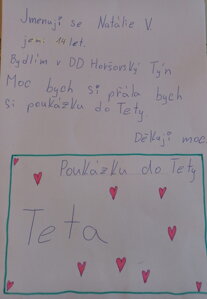 Jmenuji se Natálie V.
jsmi 14 let.
Bydlím v DD Horšovský Týn
Moc bych si přála bych
si poukázku do Tety.
Děkuji moc
Poukázku do Tety
Teta